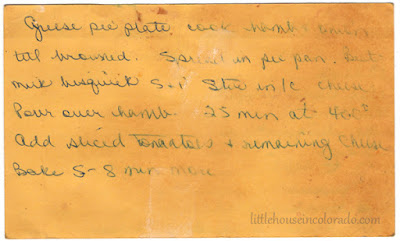 Grease pie plate cook hamb + onions
till browned. Spread in pie pan. Beat
milk bisquick S + P Stir in 1/c cheese
Pour over hamb. 25 min at 400°
Add sliced tomatoes + remaining cheese
Bake 5-8 min more
littlehouseincolorado.com